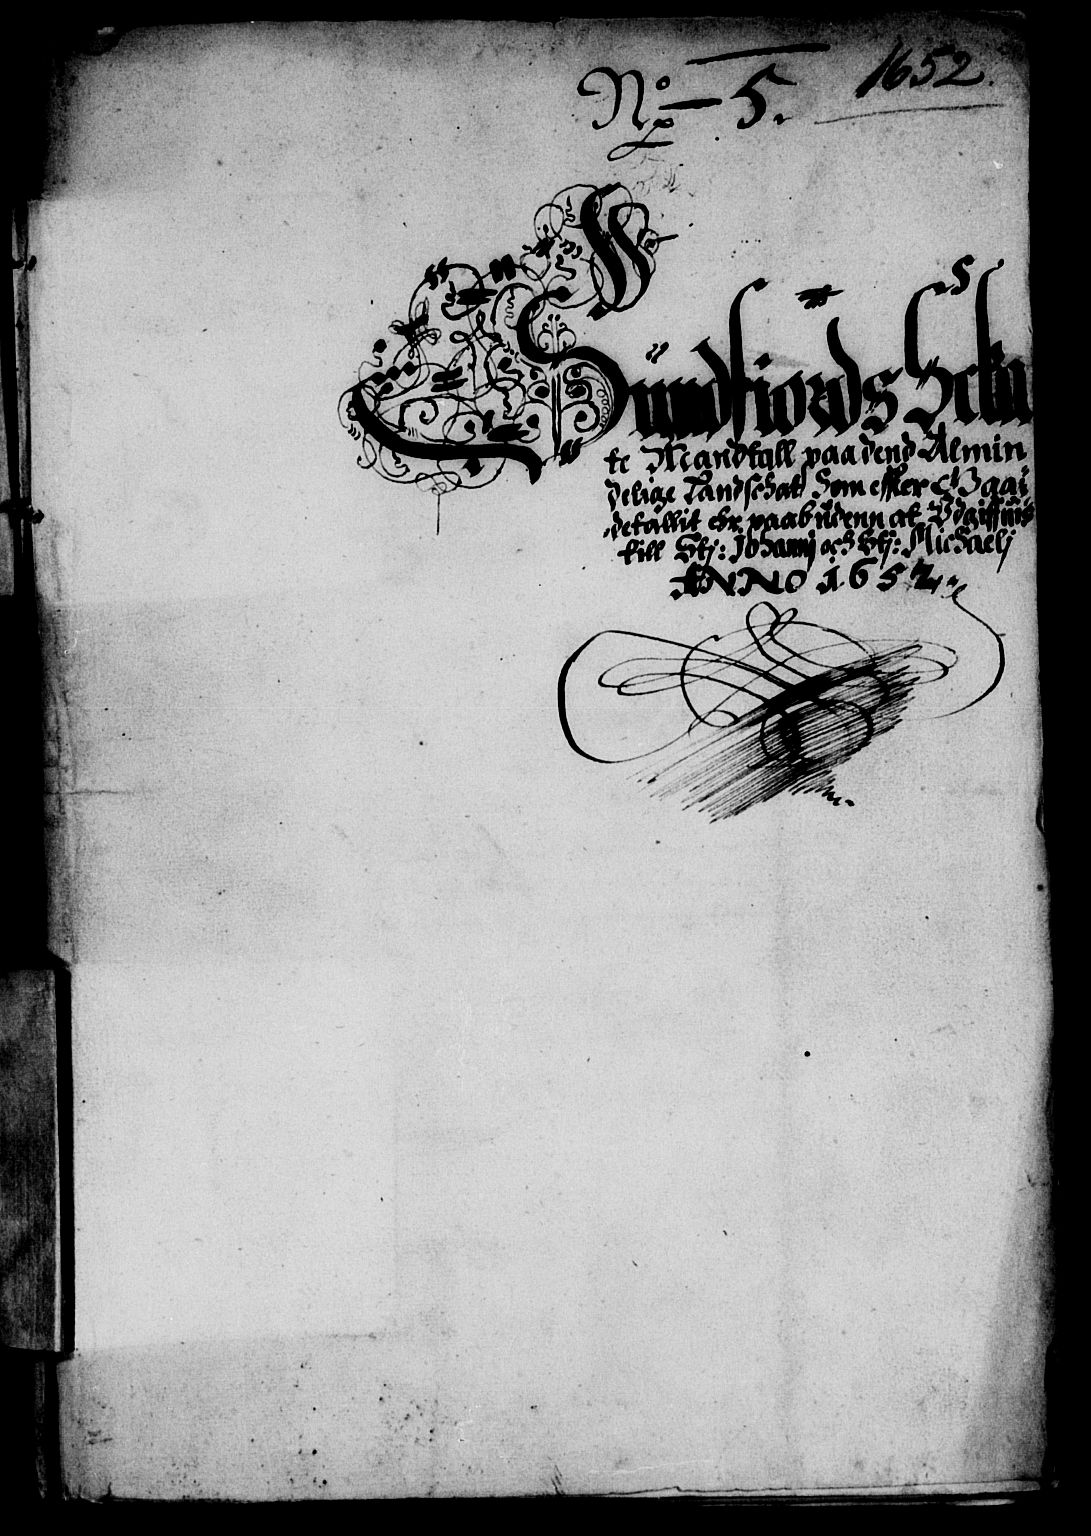 1652.
No 5.
Sündfiords Schat
te Mandtall paa dend Almin
delige Landschat Som effter
defallit ehr paabüdenn at Udgiffuis
till Stj: Johannj och Stj: Michaelj
ANNO 1652